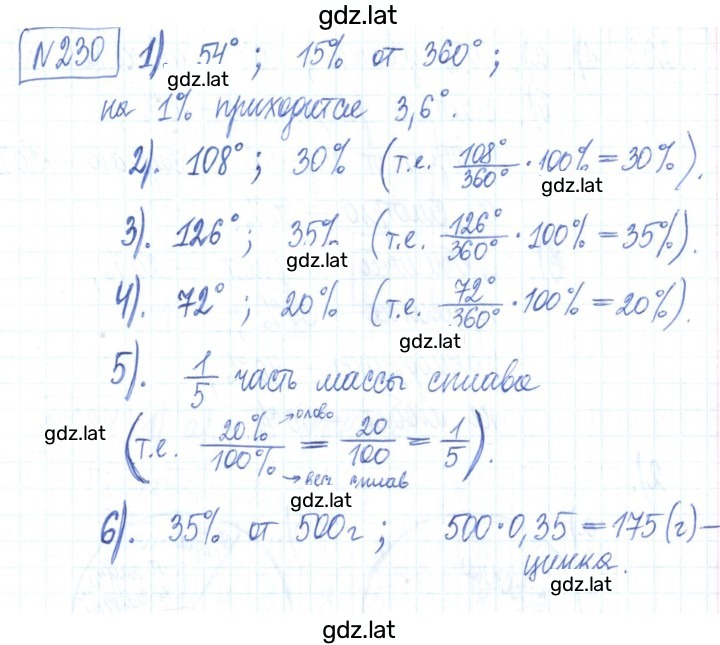 gdz.lat
N230 1). 54°; 15% от 360°;
gdz.lat
на 1% приходится 3,6°.
2). 108°; 30% (т.е. 108°/360° · 100% = 30%).
gdz.lat
3). 126°; 35% (т.е. 126°/360° · 100% = 35%).
gdz.lat
4). 72°; 20% (т.е. 72°/360° · 100% = 20%).
gdz.lat
5). 1/5 часть массы сплава
gdz.lat
(т.е. 20% → олово / 100% → весь сплав = 20/100 = 1/5).
gdz.lat
6). 35% от 500г; 500·0,35 = 175 (г) –
цинка.
gdz.lat
gdz.lat